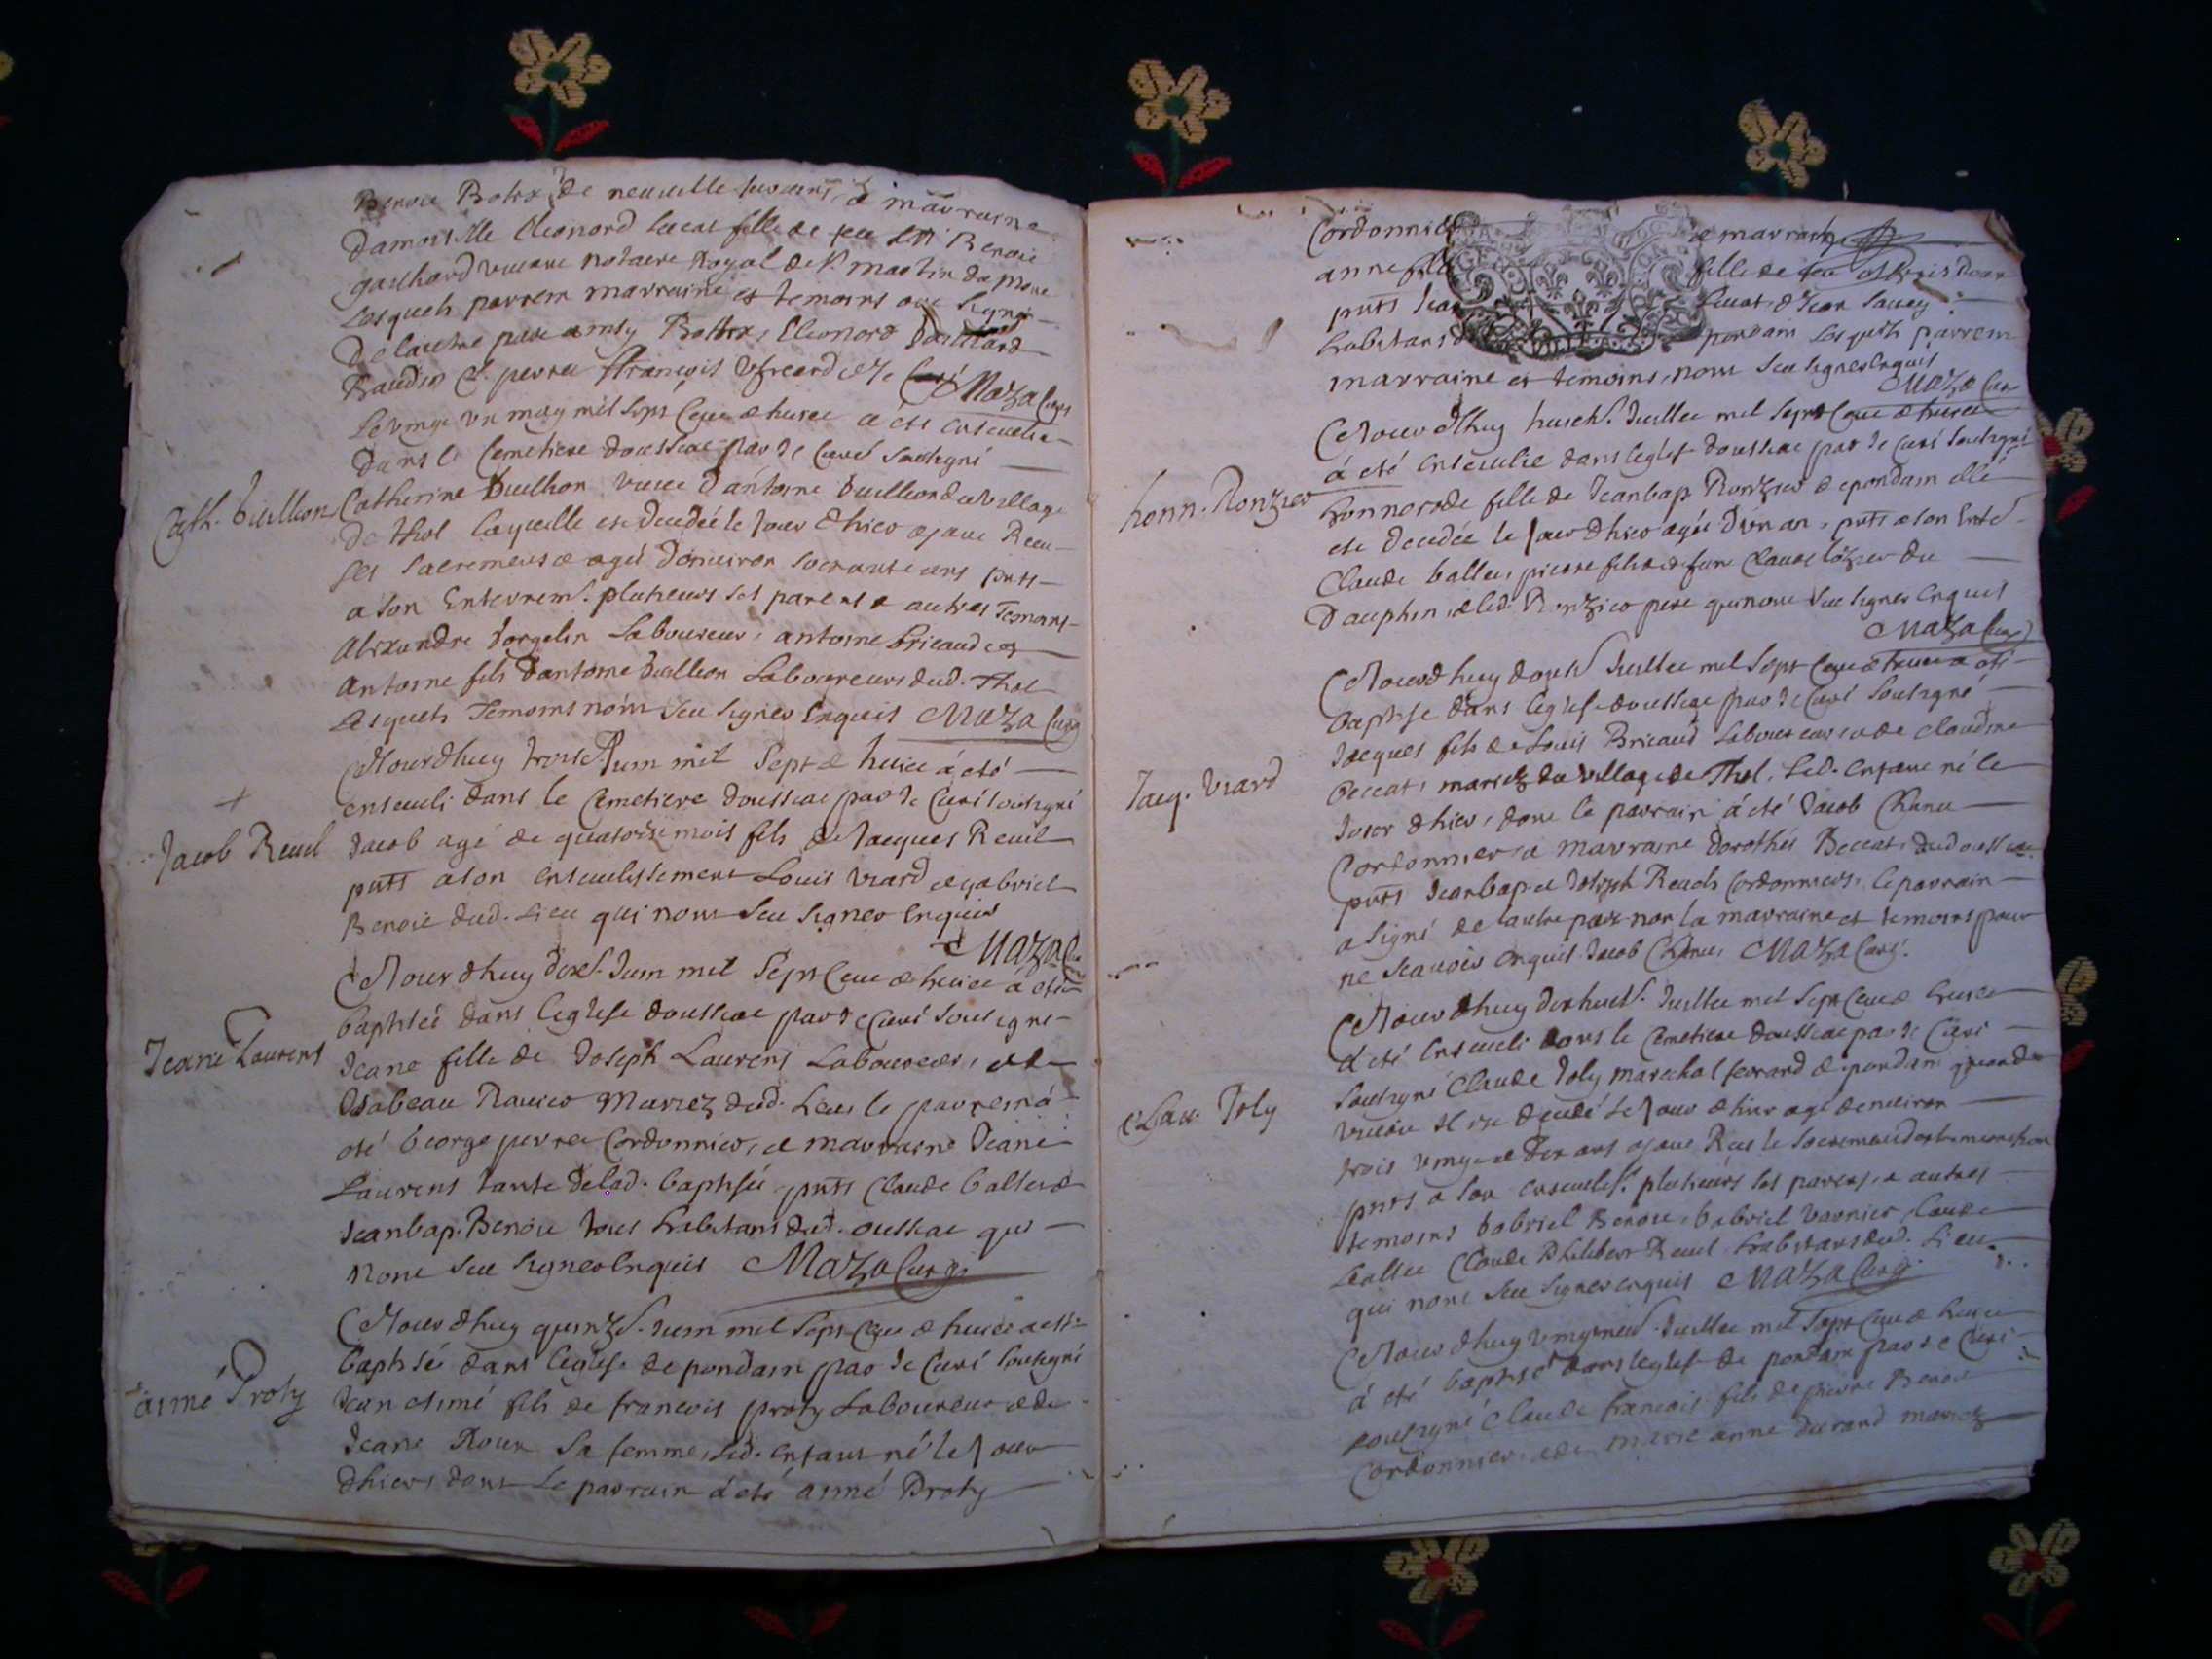 Benoit de neuville
Damoiselle Eleonord fille de feu Benoit
notaire Royal de St. martin du mont
Lesquels parrein marraine et temoins ont signé
De lautre part Eleonord
françois Maza Curé
Le vingt un may mil sept cent et huict a eté ensevelie
dans le Cemetiere doussiat par Je Curé soubsigné
Cath. Vuillion
Catherine Vuillion veuve d'antoine Vuillion du village
de thol laquelle est decedée le jour dhier ayant Receu
ses sacremens et agée d'environ soixante ans pnts
a son Enterremt. plusieurs ses parens et autres Temoins
Alexandre Laboureur, antoine Bricaud et
antoine fils dantoine Vuillion Laboureurs dud. Thol
Lesquels Temoins n'ont sceu signer Enquis Maza Curé
Ce Jourdhuy trois Juin mil Sept et huict á eté
enseveli dans le Cemetiere doussiat par Je Curé soubsigné
Jacob Reuil
Jacob agé de quatorze mois fils de Jacques Reuil
pnts a son ensevelissement Louis Viard et gabriel
Benoit dud. Lieu qui n'ont sceu signer Enquis
Maza C
Ce Jourdhuy dixe. Juin mil Sept Cent et huict á eté
baptisée dans leglise doussiat par Je Curé soubsigné
Jeane Laurens
Jeane fille de Joseph Laurens Laboureur, et de
Isabeau Mariez dud. Lieu le parrein á
eté George Cordonnier, et marraine Jeane
Laurens tante de lad. baptisée pnts Claude
Jeanbap. Benoit tous habitans dud. oussiat qui
n'ont sceu signer Enquis Maza Curé
Ce Jourdhuy quinze. Juin mil Sept Cent et huict a esté
baptisé dans leglise de pondain par Je Curé soubsigné
aimé Proty
Jean aimé fils de francois proty Laboureur et de
Jeane Roux sa femme, Led. enfant né le jour
dhier, dont le parrain á eté aimé Proty
Cordonnier et marraine
anne fille fille de feu
pnts Jean et Jean
habitans d pondain Lesquels parrein
marraine et temoins, n'ont sceu signer Enquis
Maza Curé
Ce Jourdhuy huicte. Juillet mil Sept Cent et huict
á eté ensevelie dans leglise doussiat par Je Curé soubsigné
honn. Ronzier
honnorade fille de Jeanbap Ronzier de pondain elle
est decedée le jour dhier agée d'un an, pnts a son Enter
Claude pierre fils de Claude du
Dauphin, et led. Ronzier pere qui n'ont sceu signer Enquis
Maza Curé
Ce Jourdhuy douze Juillet mil Sept Cent et huict a eté
baptise dans leglise doussiat par Je Curé soubsigné
Jacq. Viard
Jacques fils de Louis Bricaud Laboureur et de claudine
Beccat, mariez du village de Thol, Led. Enfant né le
Jour dhier, dont le parrain á eté Jacob Chanu
Cordonnier et marraine Dorothée Beccat, dud oussiat
pnts Jeanbap et Joseph Reuils Cordonniers, le parrain
a signé de lautre part non la marraine et temoins pour
ne scavoir enquis Jacob Chanu, Maza Curé.
Ce Jourdhuy dixhuicte. Juillet mil Sept Cent et huict
á eté Enseveli dans le Cemetiere doussiat par Je Curé
Clau. Joly
soubsigné Claude Joly marechal de pondain quand
vivoit il est decedé le jour dhier agé denviron
trois vingt et dix ans ayant Receu le sacrement
pnts a son ensevelist. plusieurs ses parens, et autres
temoins Gabriel Benoit, Gabriel Varnier, Claude
Claude Philibert Reuil habitans dud. Lieu
qui n'ont sceu signer enquis Maza Curé.
Ce Jourdhuy Juillet mil Sept Cent et huict
á eté baptisé dans leglise de pondain par Je Curé
soubsigné Claude francois fils de pierre Benoit
Cordonnier, et de marie anne durand mariez